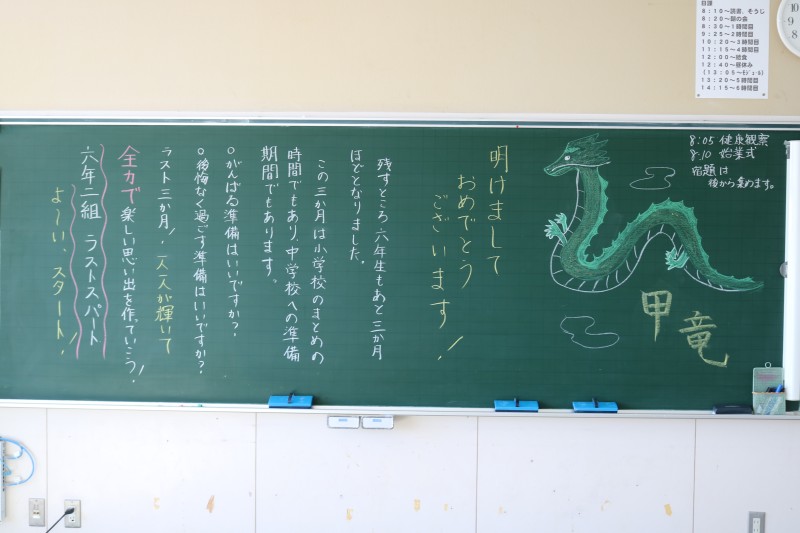 日課
8:10～読書、そうじ
8:20～朝の会
8:30～1時間目
9:25～2時間目
10:20～3時間目
11:15～4時間目
12:00～給食
12:40～昼休み
(13:05～ﾓｼﾞｭｰﾙ)
13:20～5時間目
14:15～6時間目
10
9
8
8:05 健康観察
8:10 始業式
宿題は
後から集めます。
甲竜
明けまして
おめでとう
ございます!
残すところ六年生もあと三か月
ほどとなりました。
この三か月は小学校のまとめの
時間でもあり、中学校への準備
期間でもあります。
○がんばる準備はいいですか?
○後悔なく過ごす準備はいいですか?
ラスト三か月!一人一人が輝いて
全力で楽しい思い出を作っていこう!
六年二組 ラストスパート
よ〜い、スタート!